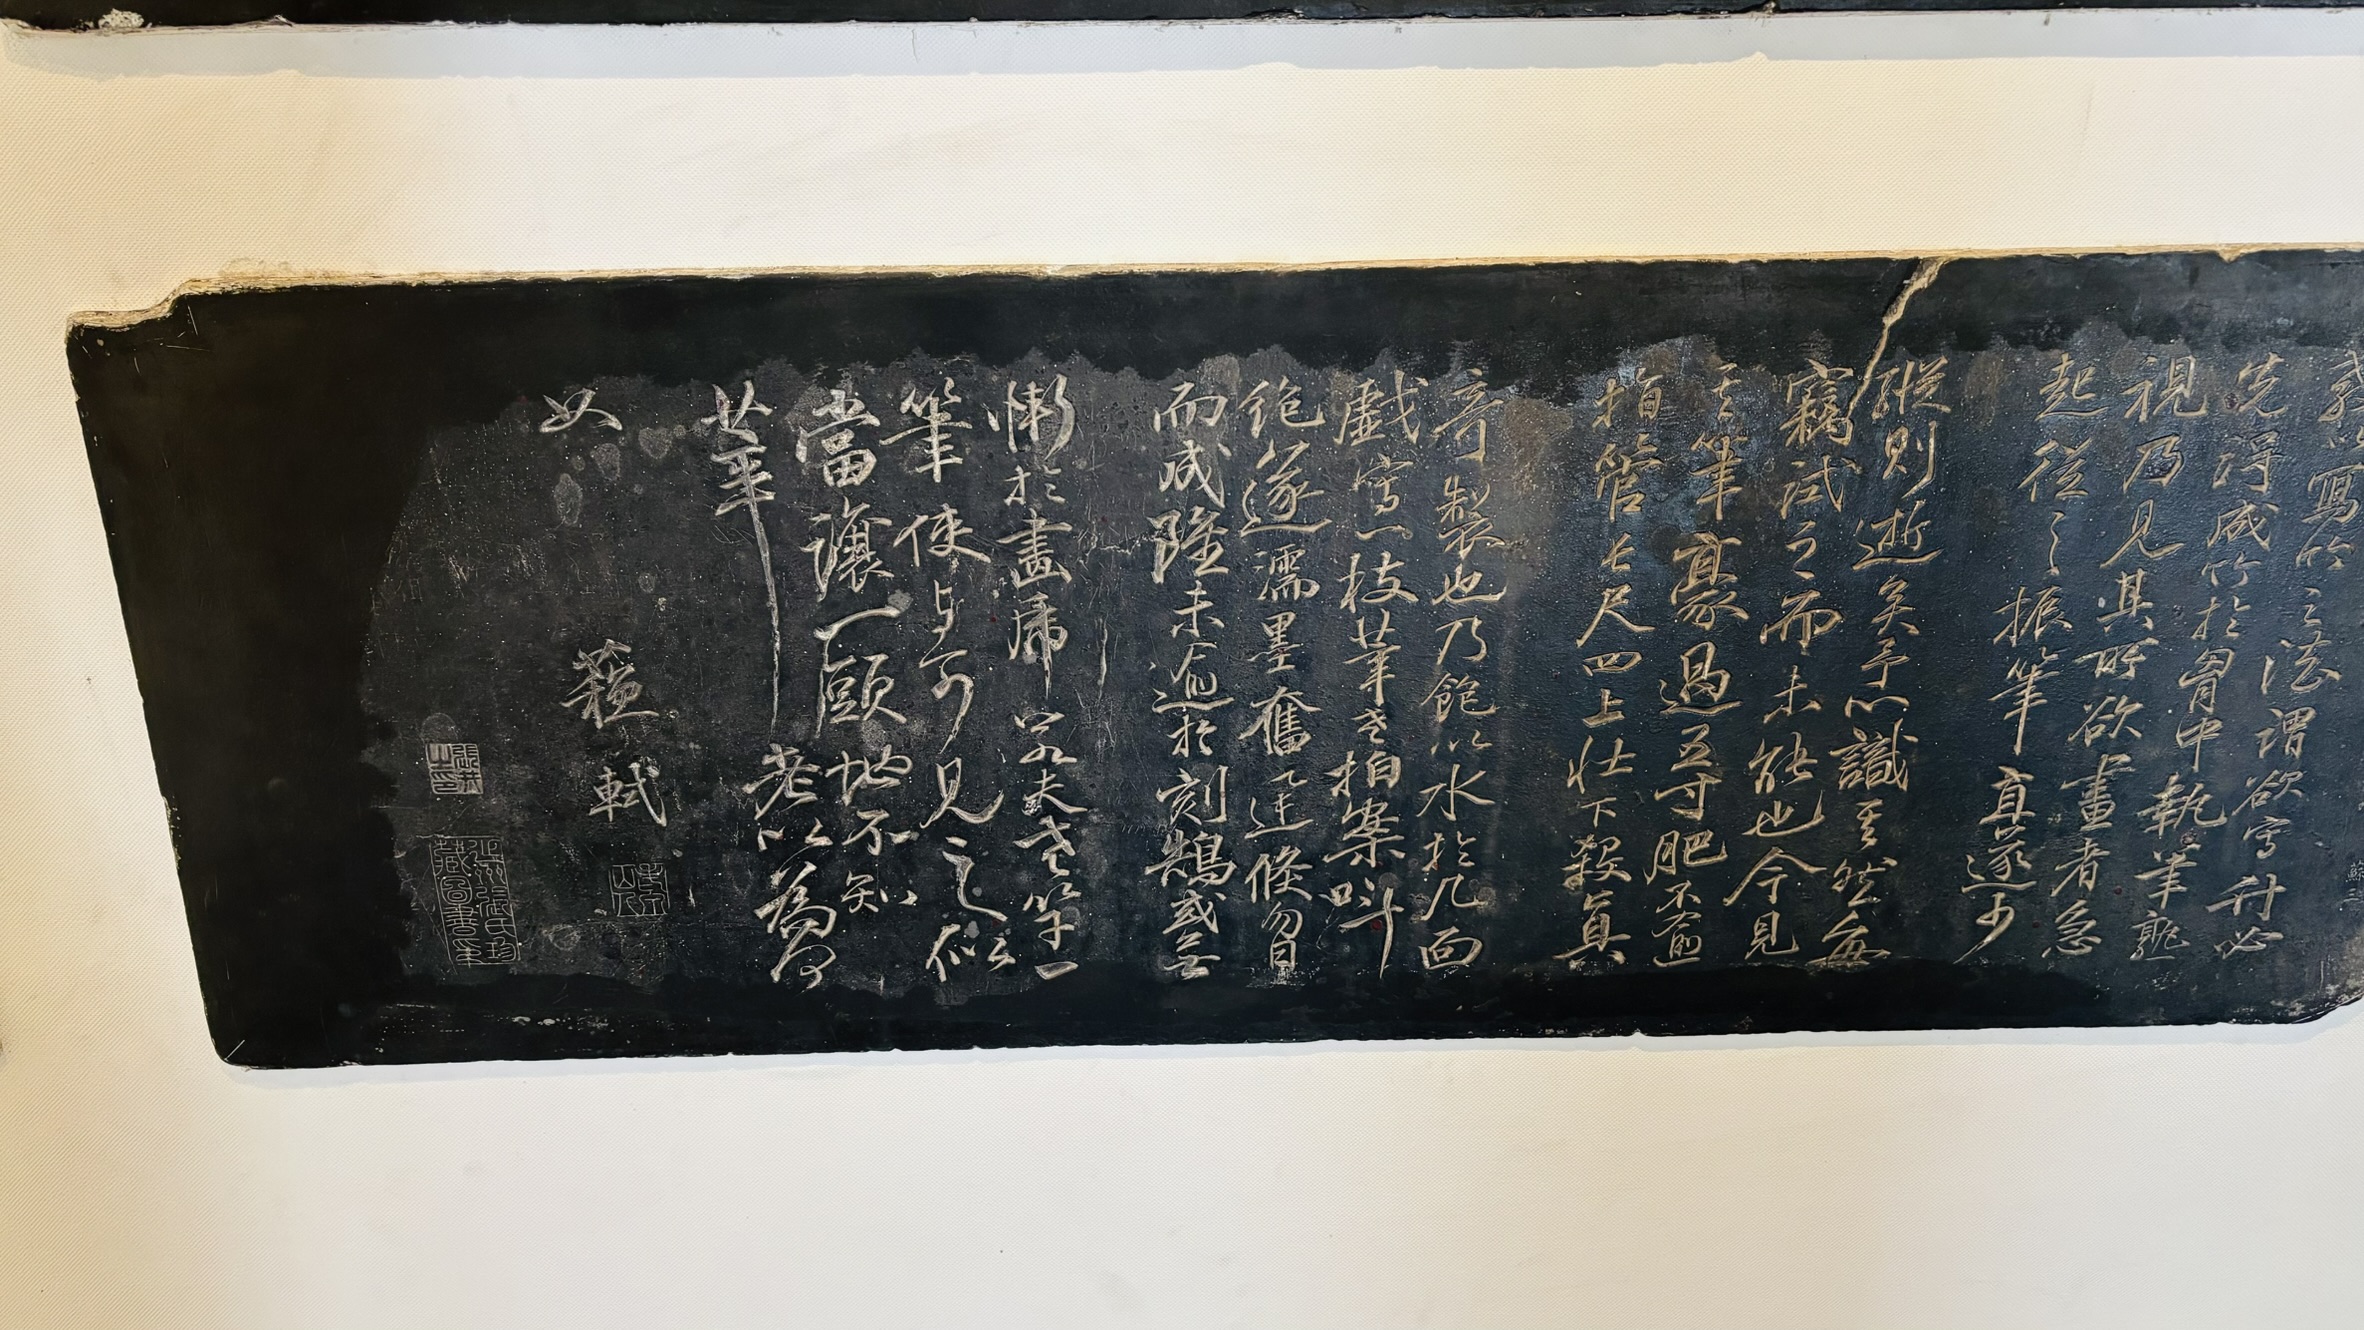 教以寫竹之法謂欲寫竹必
先得成竹於胷中執筆熟
視乃見其所欲畫者急
起從之振筆直遂少
縱則逝矣予心識其然每
竊試之而未能也今見
其筆豪過五寸肥不逾
指管長尺四上壯下殺真
奇製也乃飽以水於几面
戲寫一枝莘老拍案叫
絕遂濡墨奮迅倏勿日
而成雖未逼於刻鵠或無
慚於畫虎夫老一
筆使与可見之似
當讓一頭地不知
莘老以為何
如
蘇軾